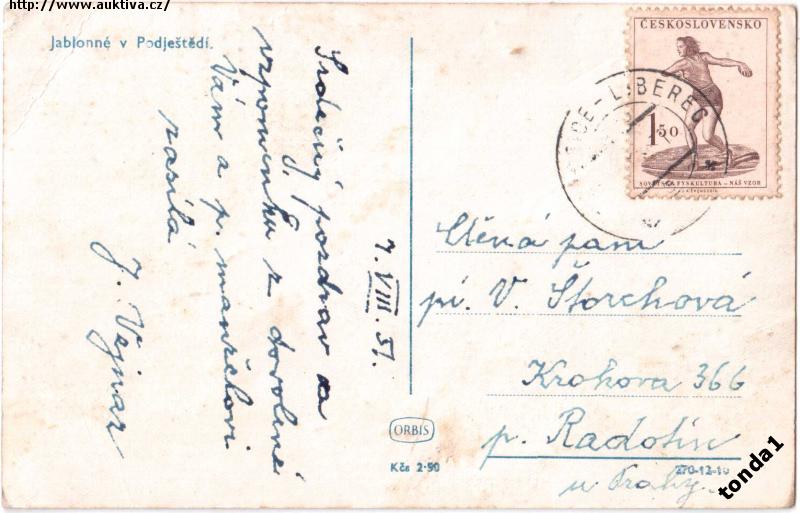 http://www.auktiva.cz/
Jablonné v Podještědí.
Srdečný pozdrav a
vzpomínku z dovolené
Vám a p. manželovi
zasílá
J. Vejnar
7. VIII. 51.
ČESKOSLOVENSKO
1.50
SOVĚTSKÁ FYSKULTURA - NÁŠ VZOR
LIBEREC
Ctěná paní
pí. V. Štorchová
Krohova 366
p. Radotín
u Prahy
ORBIS
Kčs 2·50
270-12-10
tonda1